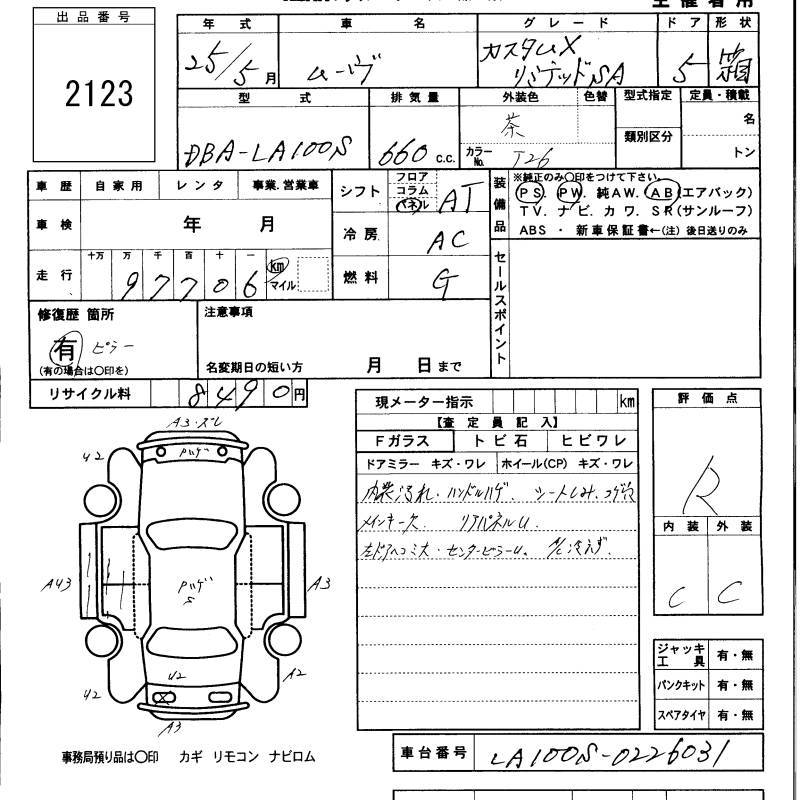 出品番号
2123
年式 車名 グレード ドア 形状
25/5月 ムーヴ カスタムX リミテッドSA 5 箱
型式 排気量 外装色 色替 型式指定 定員・積載
DBA-LA100S 660 c.c. 茶 類別区分 名
カラーNo. T26 トン
車歴 自家用 レンタ 事業.営業車
車検 年 月
走行 十万 万 千 百 十 一
97706 km マイル
シフト フロア コラム パネル AT
冷房 AC
燃料 G
装備品 ※純正のみ○印をつけて下さい。
PS. PW. 純AW. AB(エアバック)
TV. ナビ. カワ. SR(サンルーフ)
ABS ・ 新車保証書←(注) 後日送りのみ
セールスポイント
修復歴 箇所
有 ピラー
(有の場合は○印を)
注意事項
名変期日の短い方 月 日まで
リサイクル料 8490円
現メーター指示 km
【査定員記入】
Fガラス トビ石 ヒビワレ
ドアミラー キズ・ワレ ホイール(CP) キズ・ワレ
内装汚れ・ハンドルハゲ. シートしみ.コゲ穴
メインキー欠 リアパネルU.
左ドアヘコミ大・センターピラーU. A/C冷えず.
評価点
R
内装 外装
C C
A3・ズレ
Pハゲ
U2
A43
Pハゲ
S
A3
U2
U2
A2
A3
ジャッキ工具 有・無
パンクキット 有・無
スペアタイヤ 有・無
事務局預り品は○印 カギ リモコン ナビロム
車台番号 LA100S-0226031